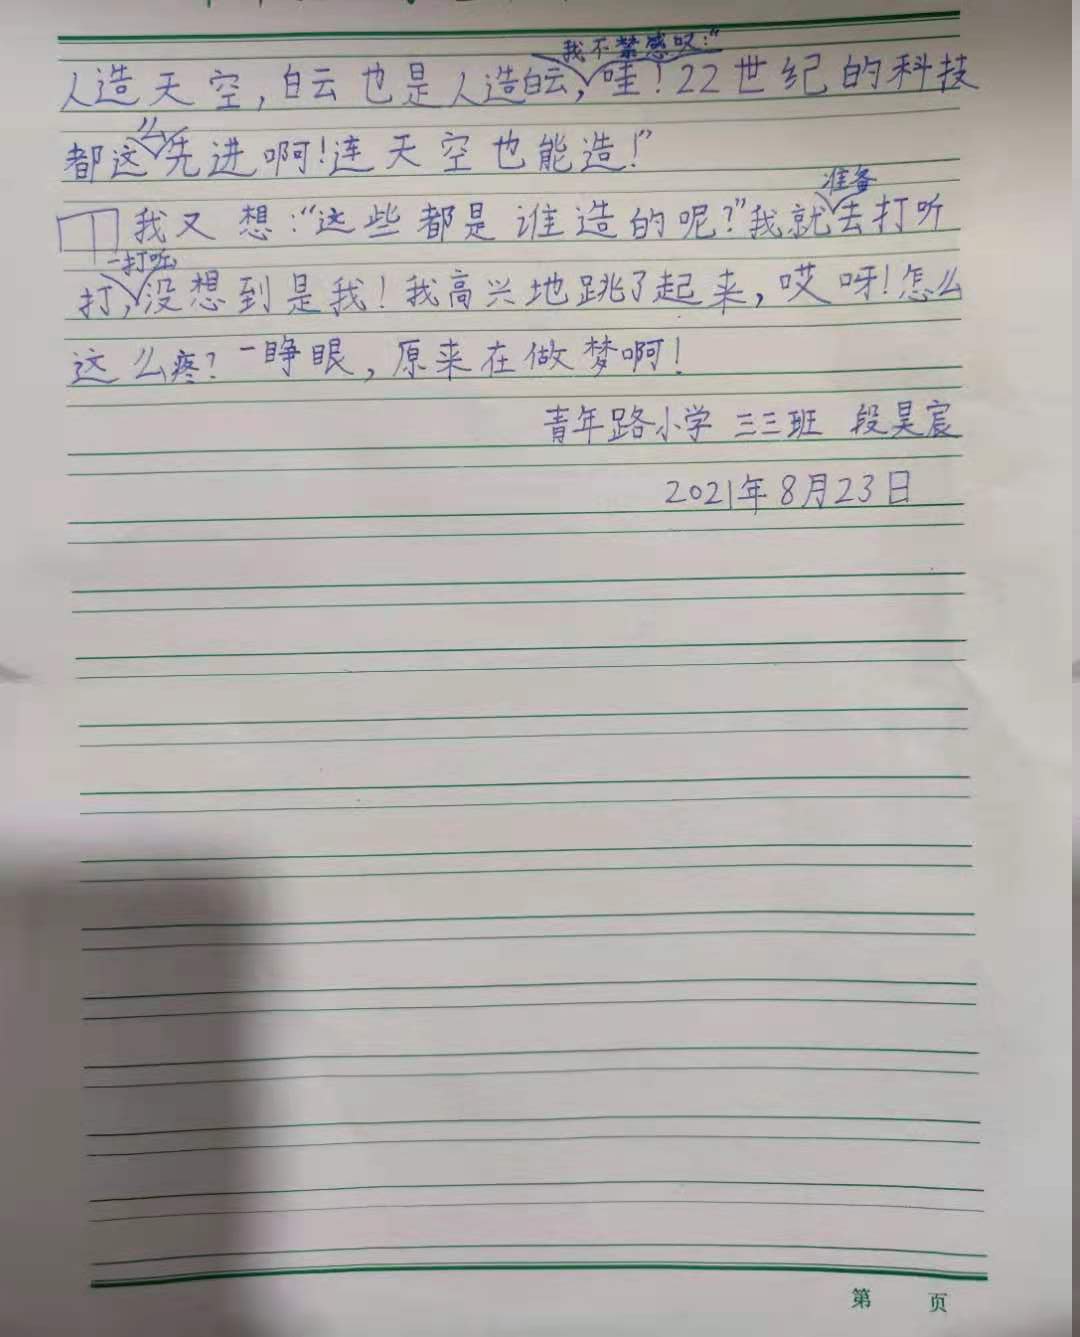 我不禁感叹:“
人造天空,白云也是人造白云,哇!22世纪的科技
么
都这先进啊!连天空也能造!”
准备
我又想:“这些都是谁造的呢?”我就去打听
一打听
打,没想到是我!我高兴地跳了起来,哎呀!怎么
这么疼?一睁眼,原来在做梦啊!
青年路小学 三三班 段昊宸
2021年8月23日
第 页